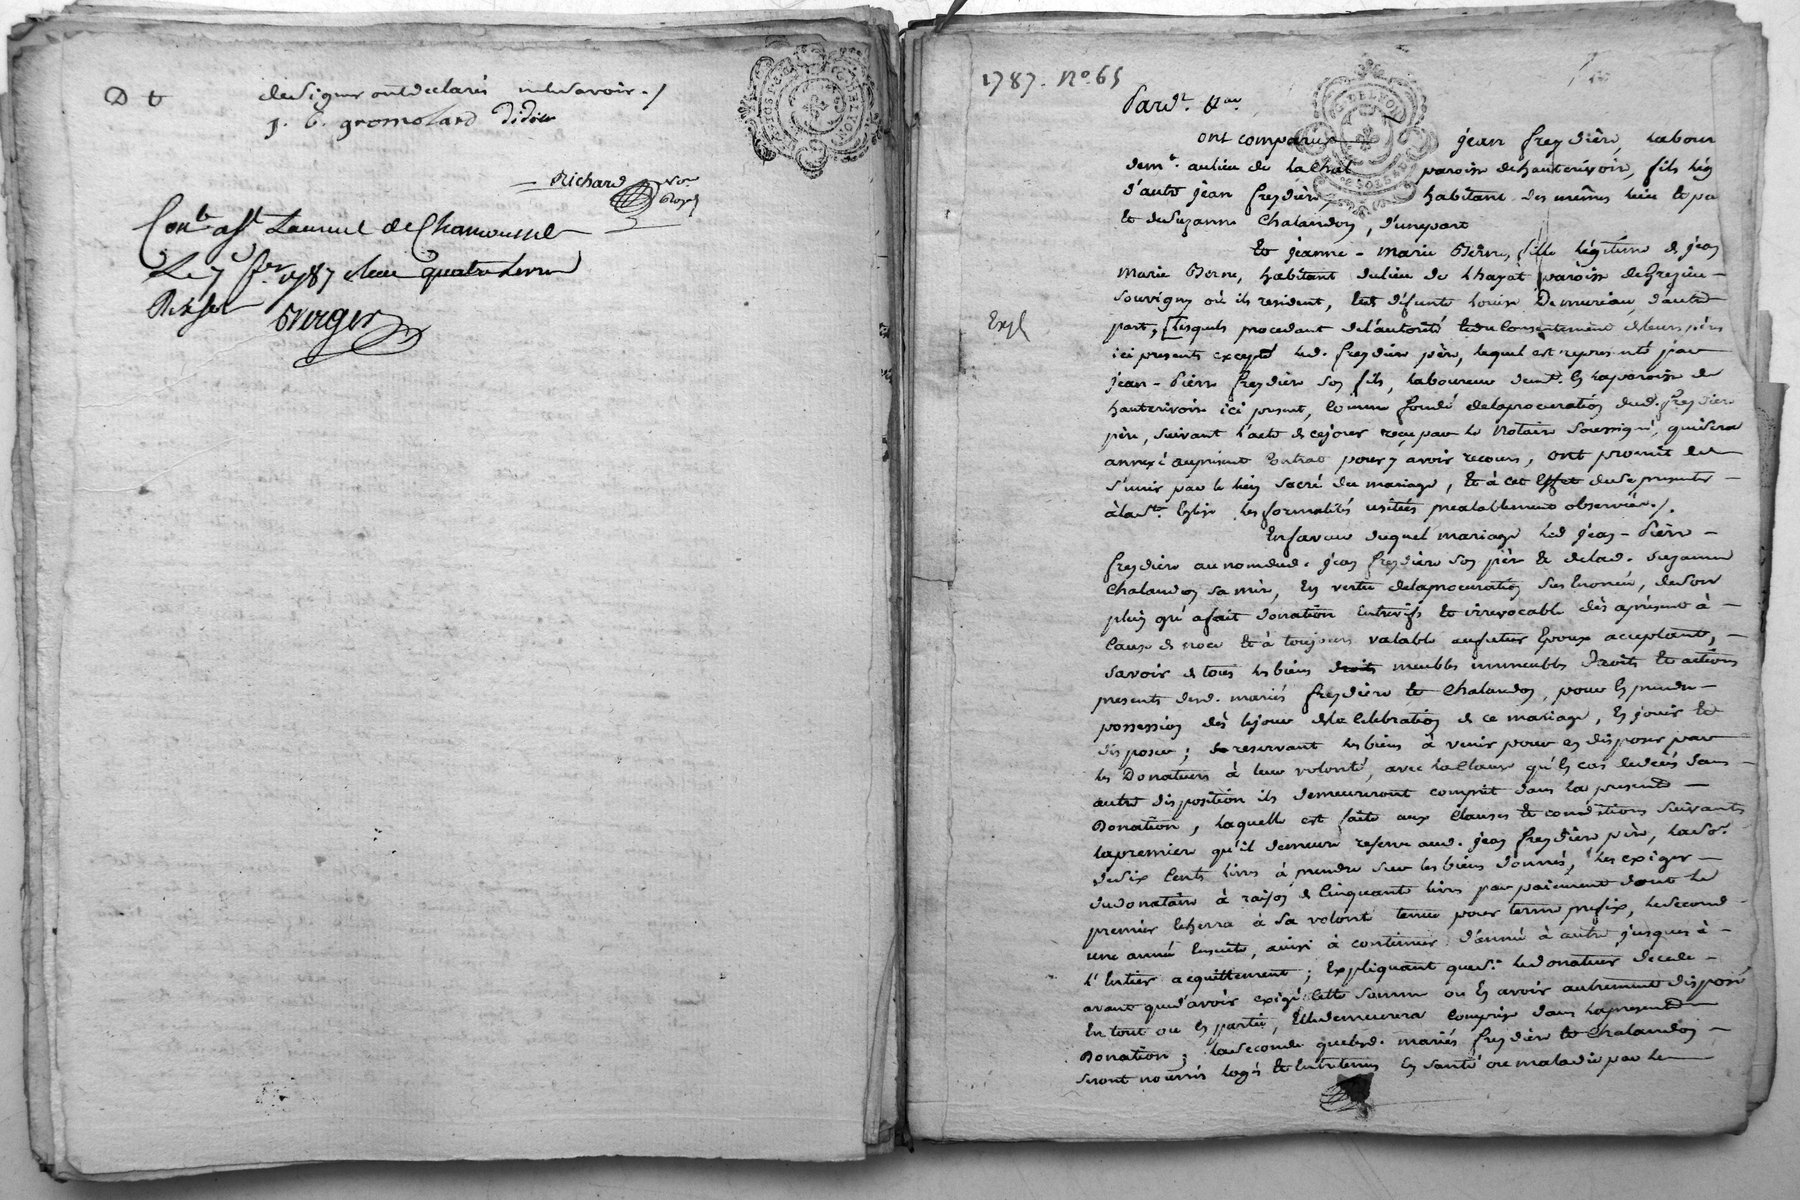 D
de signer ont declaré ne le savoir ./
j. b. gromolard Didier
Richard no.re
Royal
Con.le à S.t Laurent de Chamousset
Le 7 f.er 1787 Reçu quatre livres
Verger
G. DE LYON
1787. N.o 65
Pard.t &.a
ont comparu jean freydiere, Labour
dem.t au lieu de La Chal paroisse de hauterivoire, fils lég
d'autre jean freydiere, habitant des mêmes lieu et pa
et de Suzanne Chalandon, d'une part
Et jeanne-marie Berne, fille légitime de jean
marie Berne, habitant du lieu de Lhayat paroisse de grezieu-
souvigny où ils resident, et de défunte Louise Demureau, d'autre
Expé
part, Lesquels procedant de l'autorité et du Consentement de leurs pères
ici presents excepté led. freydiere père, lequel est représenté par
jean-Pierre freydiere son fils, laboureur dem.t en la paroisse de
hauterivoire ici present, comme fondé de la procuration dud. freydiere
père, suivant l'acte de ce jour reçu par le Notaire soussigné, qui sera
annexé au present Contrat pour y avoir recours, ont promit de
s'unir par le lien sacré du mariage, et à cet effet de se presenter
à la S.te Eglise les formalités usitées prealablement observées ./.
En faveur duquel mariage led jean-Pierre
freydiere au nom dud. jean freydiere son père et de lad. Suzanne
Chalandon sa mère, en vertu de la procuration sus enoncée, de son
plein gré a fait donation entrevifs et irrevocable dès apresent à
Cause de noce et à toujours valable au futur Epoux acceptant,
savoir de tous les biens droits meubles immeubles droits et actions
presents desd. mariés freydiere et Chalandon, pour en prendre
possession dès le jour de la Celebration de ce mariage, en jouir et
disposer; se reservant les biens à venir pour en disposer par
les Donateurs à leur volonté, avec la Clause qu'en cas de decès sans
autre disposition ils demeureront comprit dans la presente
Donation, laquelle est faite aux Clauses et conditions suivantes
la premiere qu'il demeure reservé aud. jean freydiere père, la so.e
de six Cents livres à prendre sur les biens donnés, les exiger
du donataire à raison de Cinquante livres par paiement dont le
premier Echerra à sa volonté tenue pour terme prefix, le second
une année Ensuite, ainsi à continuer d'année à autre jusques à
l'Entier acquittement; Expliquant que si led donateur decede
avant que d'avoir exigé Cette somme ou en avoir autrement disposé
en tout ou en partie, Elle demeurera Comprise dans la presente
Donation; la seconde que lesd. mariés freydiere et Chalandon
seront nourris logés et Entretenus en santé ou maladie par le